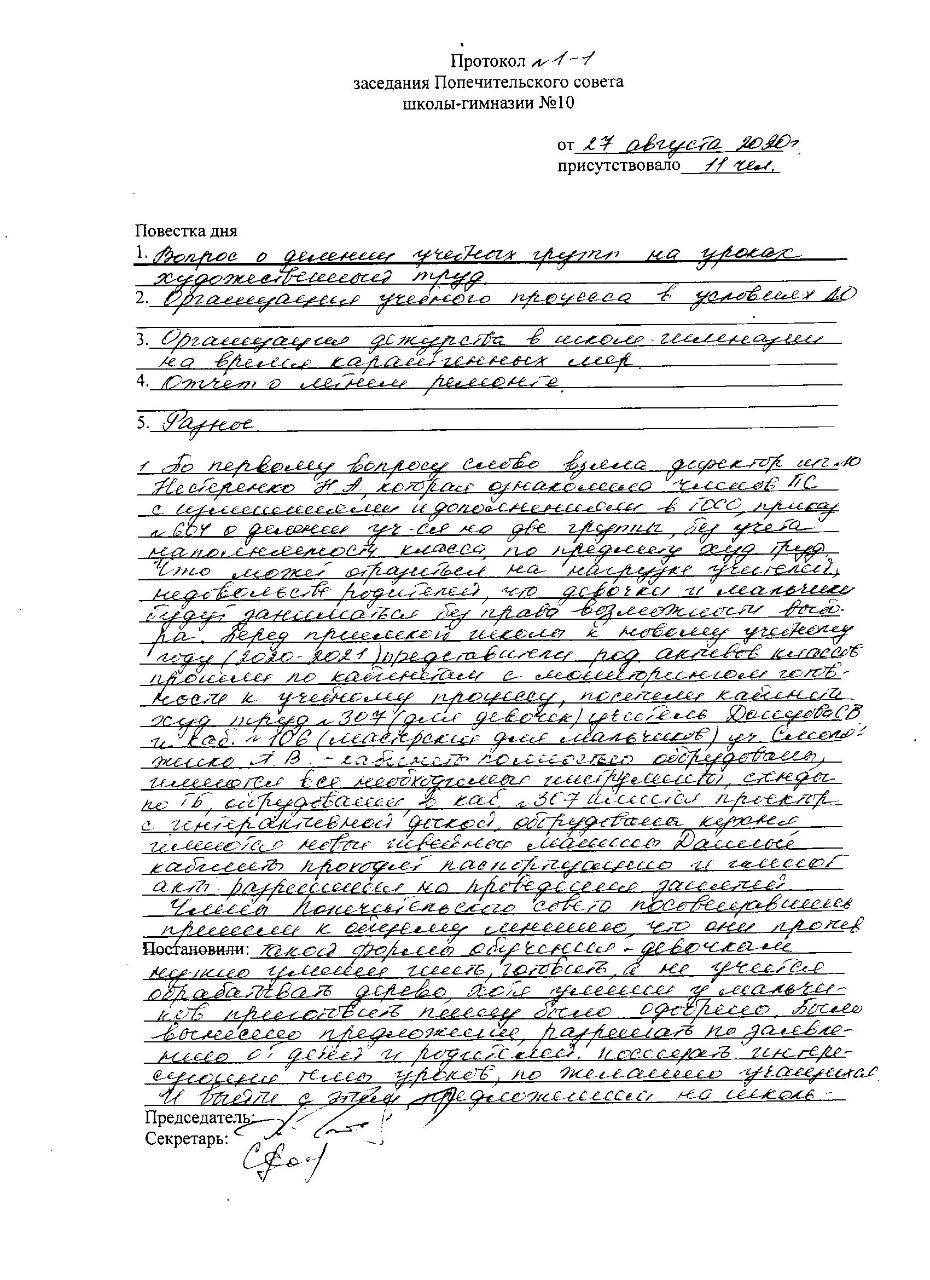 Протокол №1-1
заседания Попечительского совета
школы-гимназии №10
от 27 августа 2020г
присутствовало 11 чел.
Повестка дня
1. Вопрос о делении учебных групп на уроках
художественный труд
2. Организация учебного процесса в условиях ДО
3. Организация дежурства в школе-гимназии
на время карантинных мер
4. Отчет о летнем ремонте
5. Разное
1 По первому вопросу слово взяла директор шг №10
Нестеренко Н.А, которая ознакомила членов ПС
с изменениями и дополнениями в ГОСО, приказ
№604 о делении уч-ся на две группы, без учета
наполняемости класса, по предмету худ труд
Что может отразиться на нагрузке учителей,
недовольстве родителей, что девочки и мальчики
будут заниматься без права возможности выбо-
ра. Перед приемкой школы к новому учебному
году (2020-2021) представители род активов классов
прошли по кабинетам с мониторингом готов-
ности к учебному процессу, посетили кабинеты
худ труд №307 (для девочек) учитель СВ
и каб. №106 (мастерские для мальчиков) уч
Л.В. - кабинеты полностью оборудованы,
имеются все необходимые инструменты, стенды
по ТБ, оборудования В каб №307 имеется проектор
с интерактивной доской, оборудована кухня
имеются новые швейные машины Данные
кабинеты проходят паспортизацию и имеют
акты разрешения на проведения занятий
Члены Попечительского совета посовещавшись
пришли к общему мнению, что они против
Постановили: такой формы обучения - девочкам
нужно умения шить, готовить, а не учиться
обрабатывать дерево, хотя умения у мальчи-
ков приготовить пищу было одобрено. Было
вынесено предложение, разрешать по заявле-
нию от детей и родителей посещать интере-
сующие темы уроков, по желанию учащихся
И выйти с этим предложением на школь-
Председатель:
Секретарь: